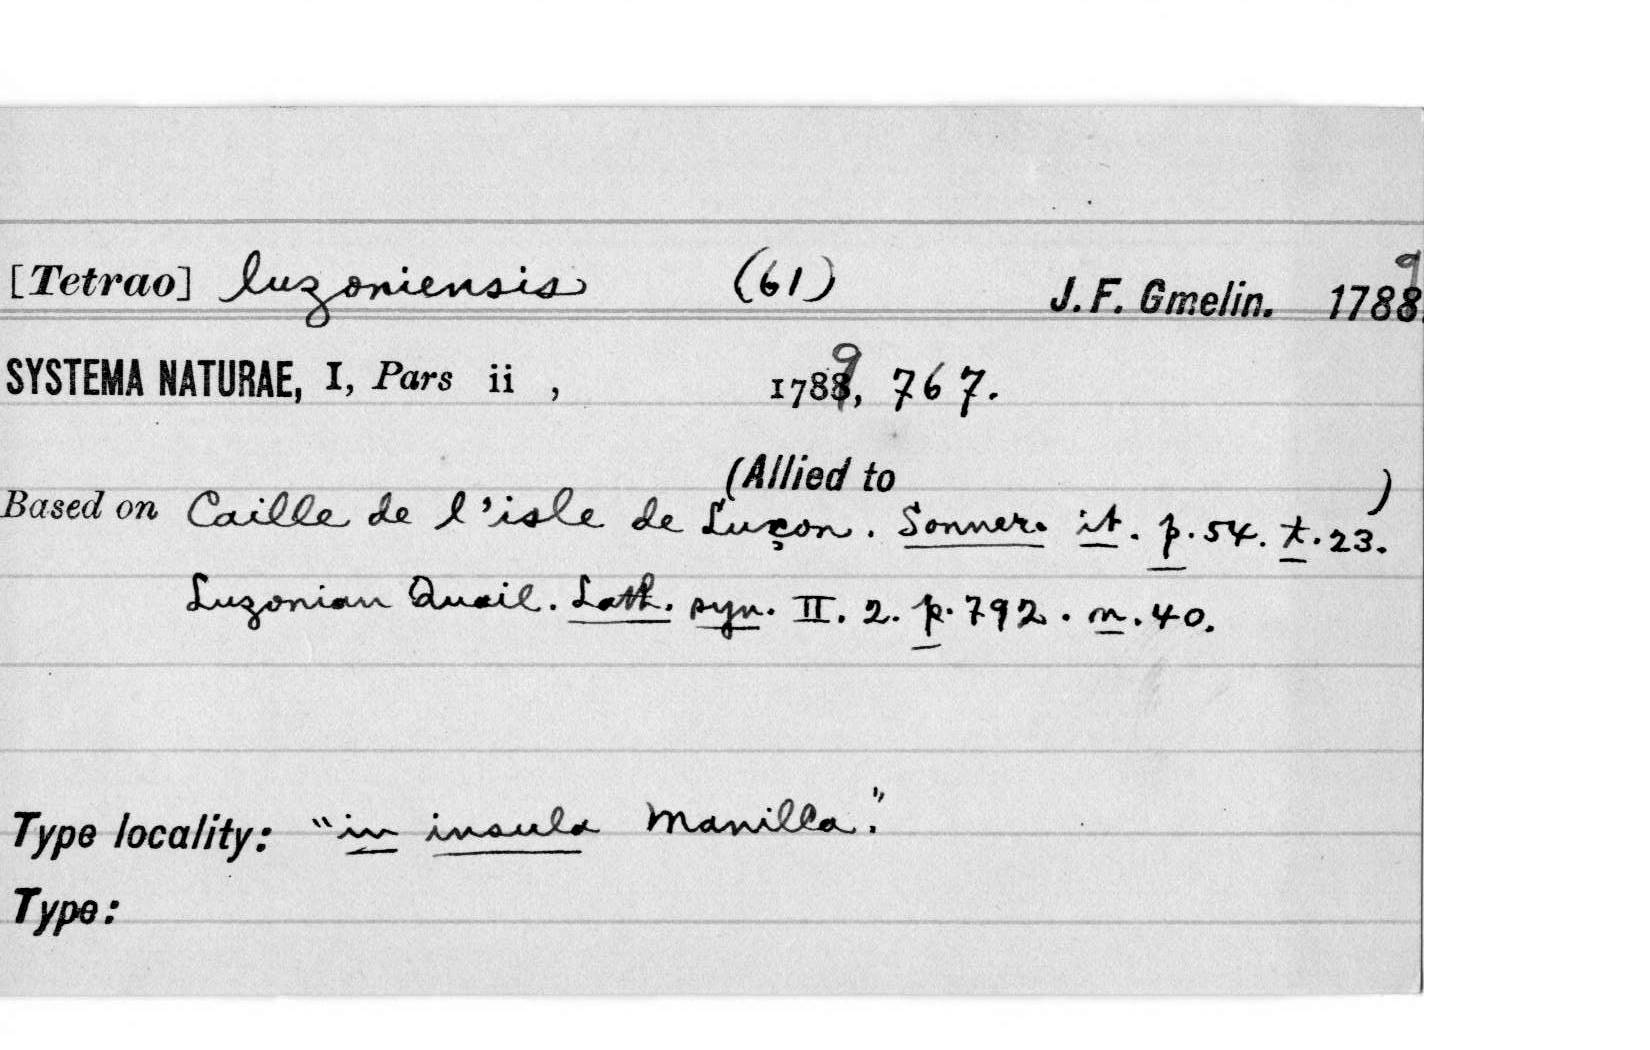 [Tetrao] luzoniensis (61) J. F. Gmelin. 1789
SYSTEMA NATURAE, I, Pars ii , 1789, 767.
(Allied to )
Based on Caille de l'isle de Luçon. Sonner. it. p. 54. t. 23.
Luzonian Quail. Lath. syn. II. 2. p. 792. n. 40.
Type locality: "in insula Manilla."
Type: